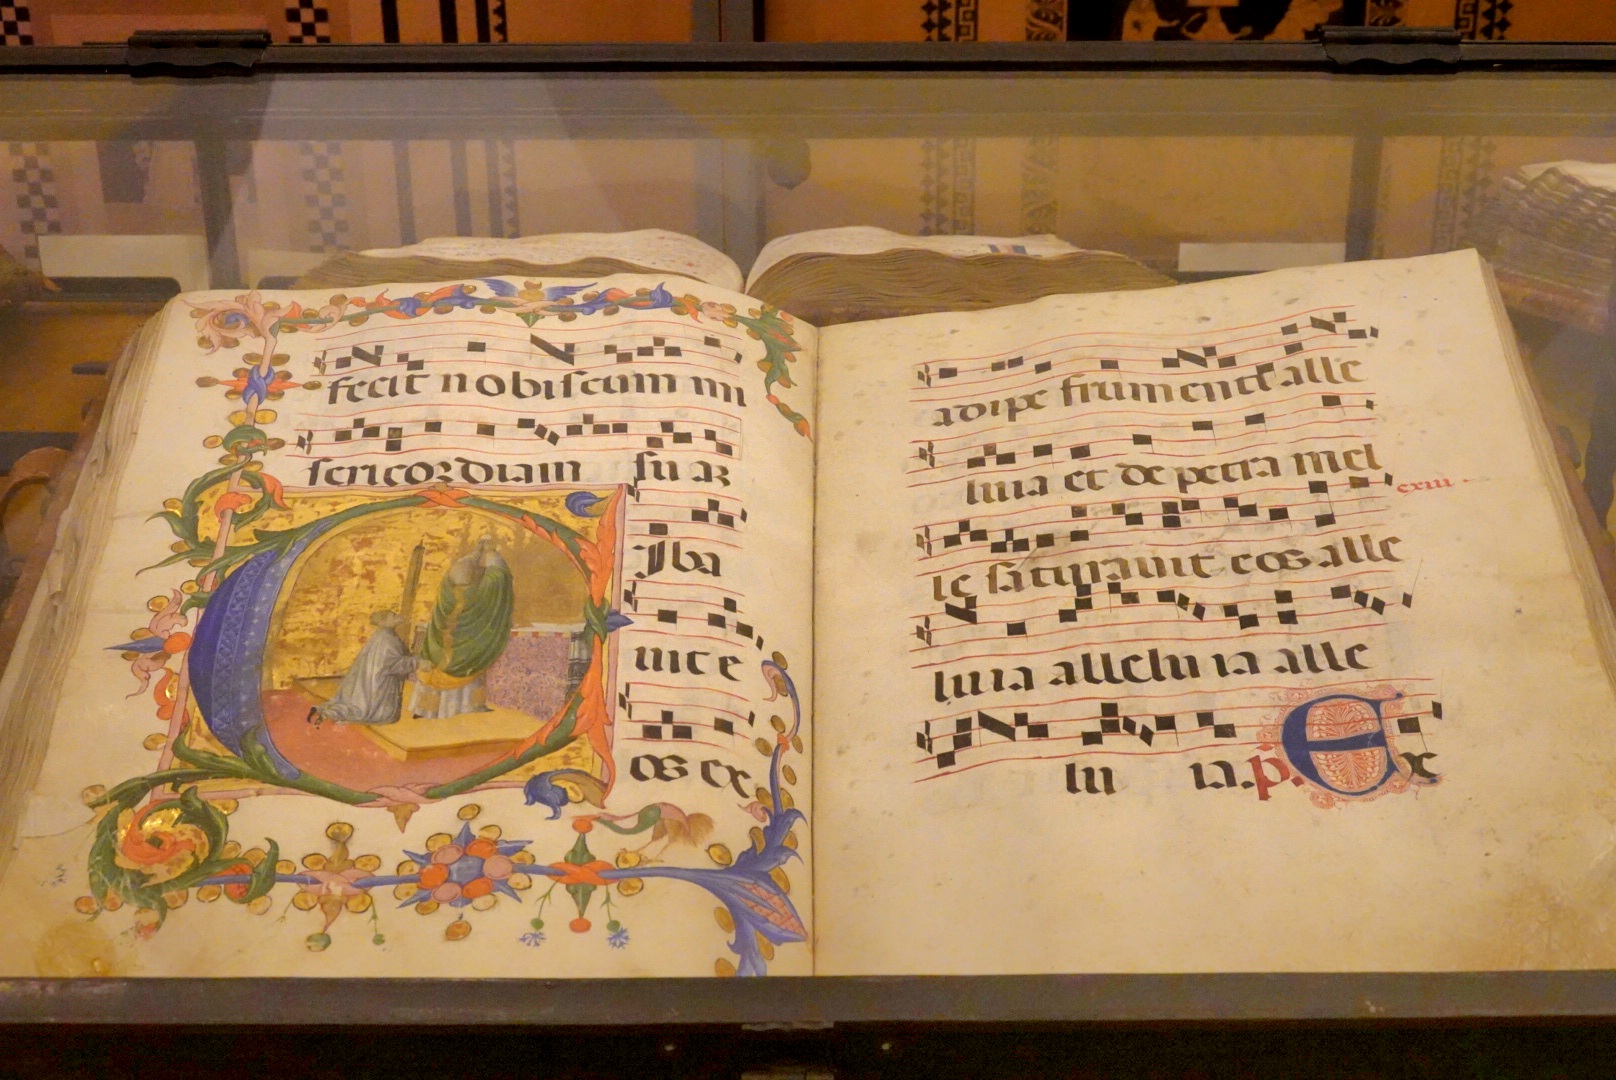 fecit nobiscum mi
sericordiam suaz
Iba
uit e
os ex
adipe frumenti alle
luia et de petra mel
cxiii
le saturauit eos alle
luia alleluia alle
luia. p. Ex